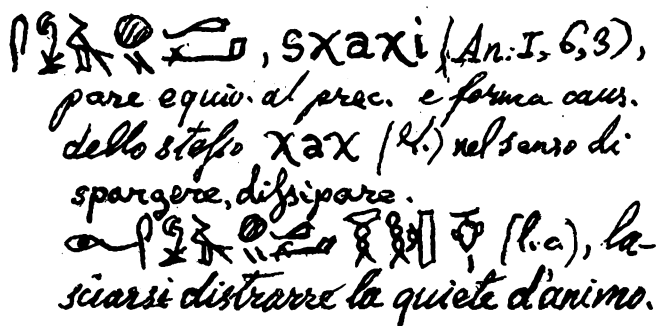 , sχaχi (An: I, 6, 3),
pare equiv. al prec. e forma caus.
dello steſso χaχ (V.) nel senso di
spargere, diſsipare.
(l.c), la-
sciarsi distrarre la quiete d'animo.